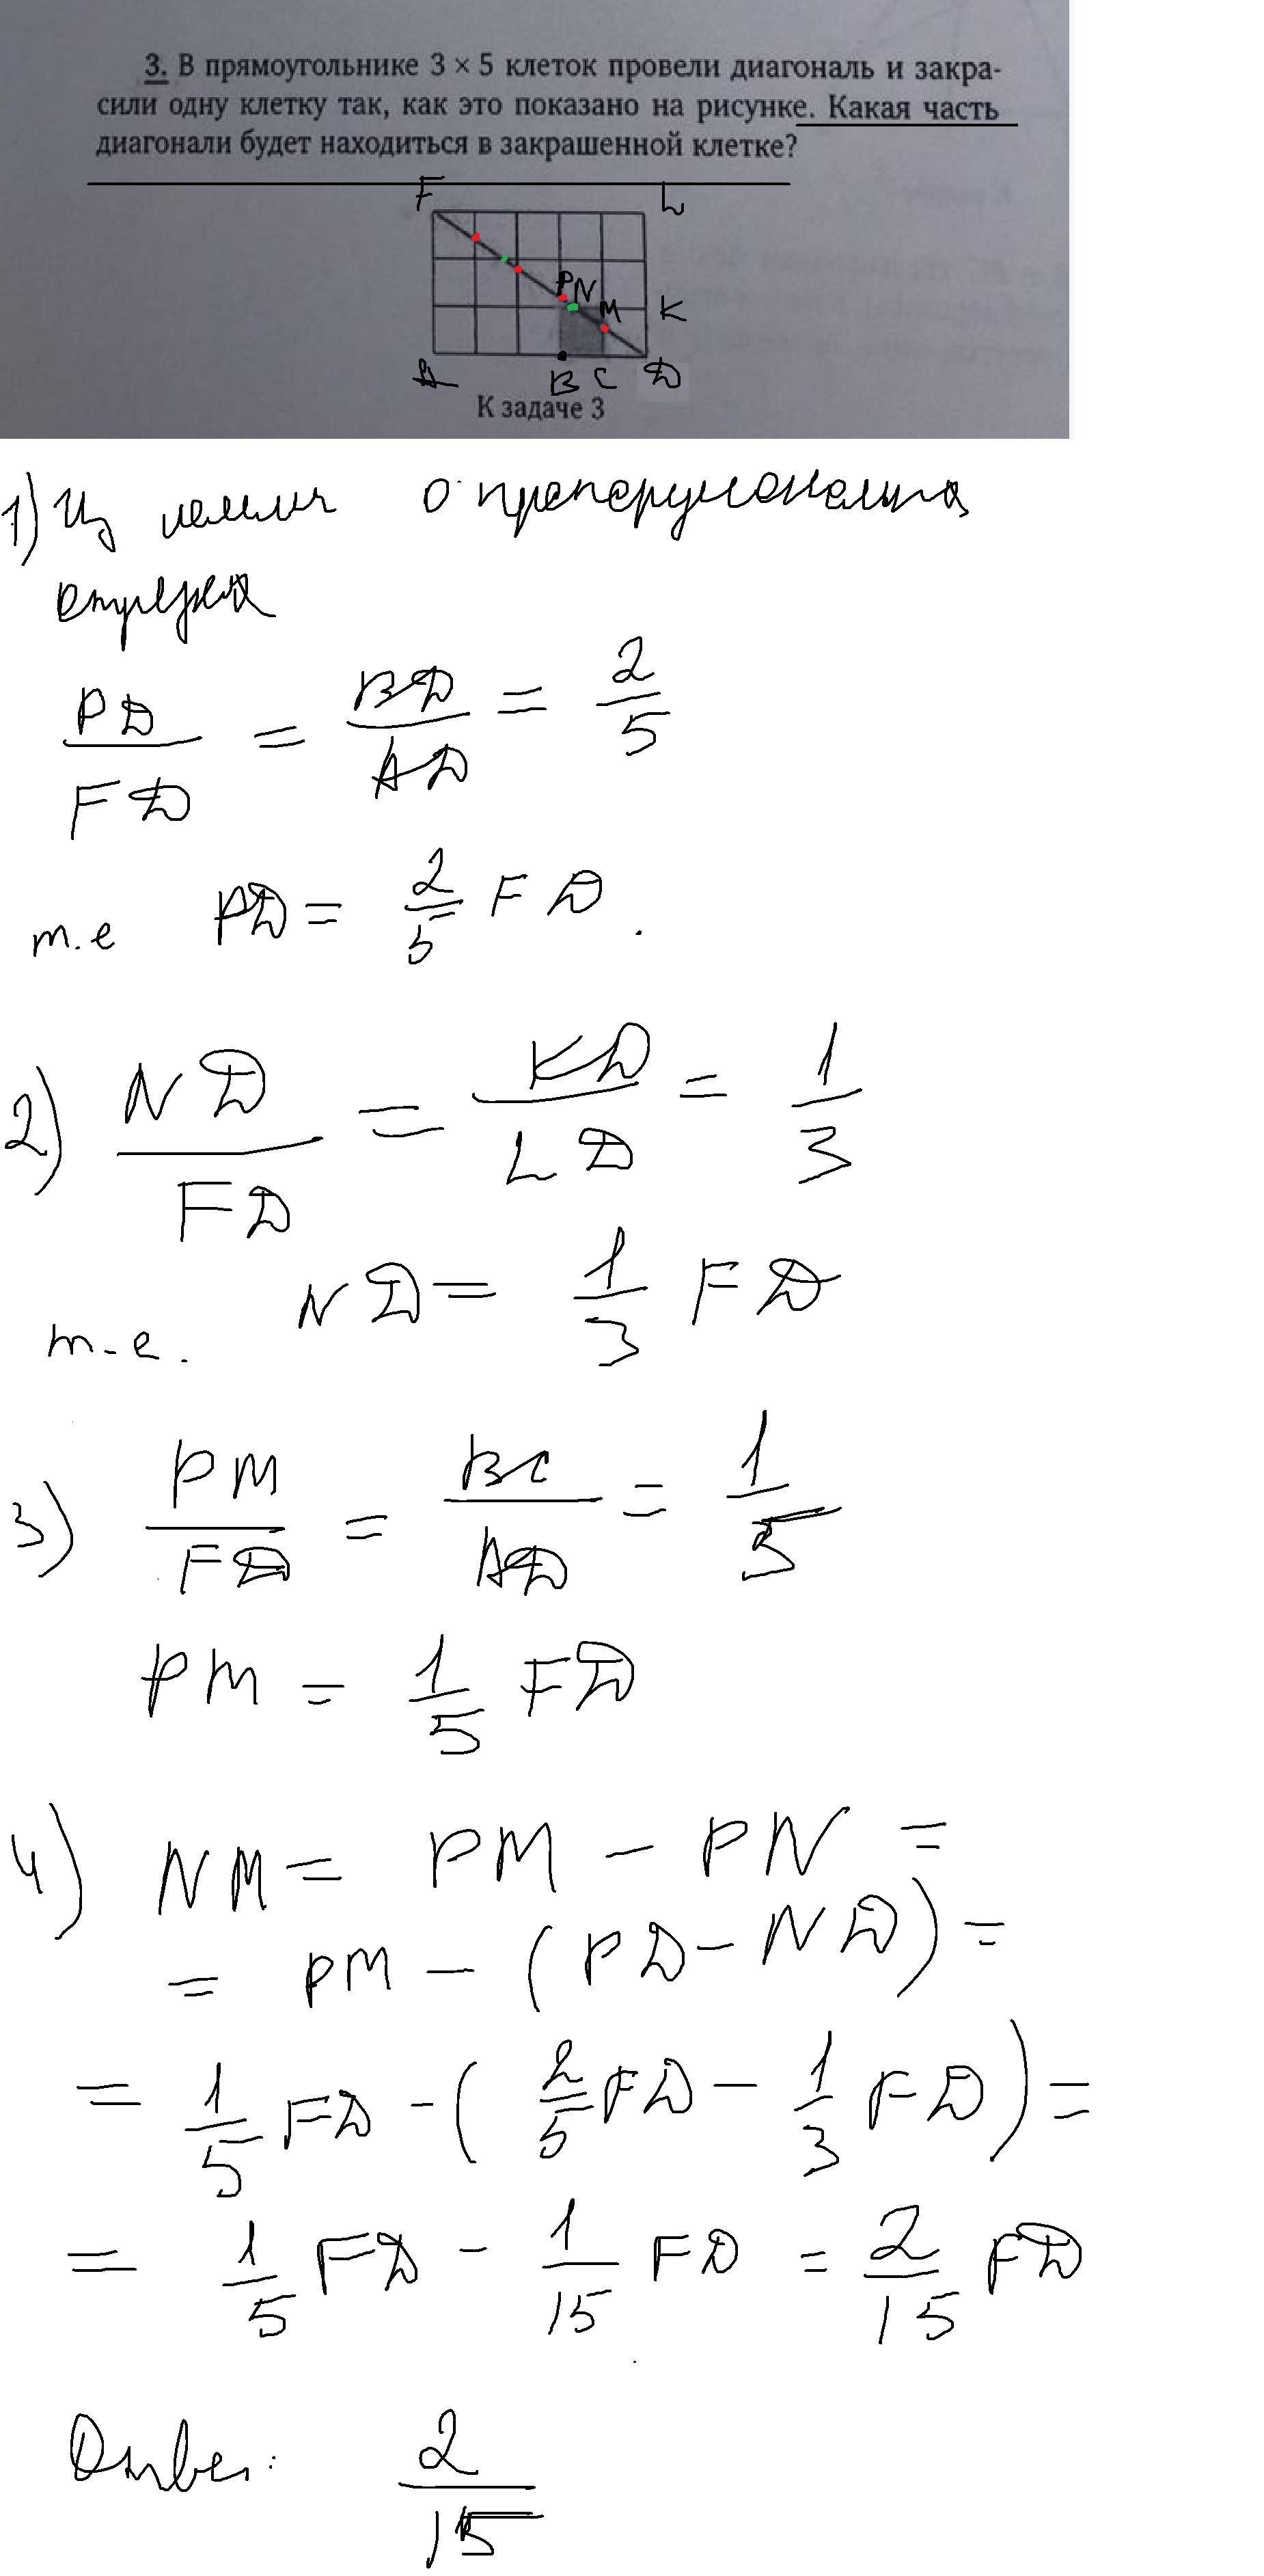 3. В прямоугольнике 3 × 5 клеток провели диагональ и закра-
сили одну клетку так, как это показано на рисунке. Какая часть
диагонали будет находиться в закрашенной клетке?
F L
P N M K
A B C D
К задаче 3
1) Из леммы о пропорционал
отрезках
PD/FD = BD/AD = 2/5
т.е PD = 2/5 FD.
2) ND/FD = KD/LD = 1/3
т-е. ND = 1/3 FD
3) PM/FD = BC/AD = 1/5
PM = 1/5 FD
4) NM = PM - PN =
= PM - (PD - ND) =
= 1/5 FD - (2/5 FD - 1/3 FD) =
= 1/5 FD - 1/15 FD = 2/15 FD
Ответ: 2/15